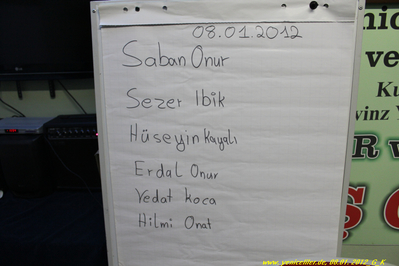 08.01.2012
Saban Onur
Sezer Ibik
Hüseyin Kayalı
Erdal Onur
Vedat Koca
Hilmi Onat
ve
Ku
vinz Y
www.yenicelller.de, 08.01.2012 G_K